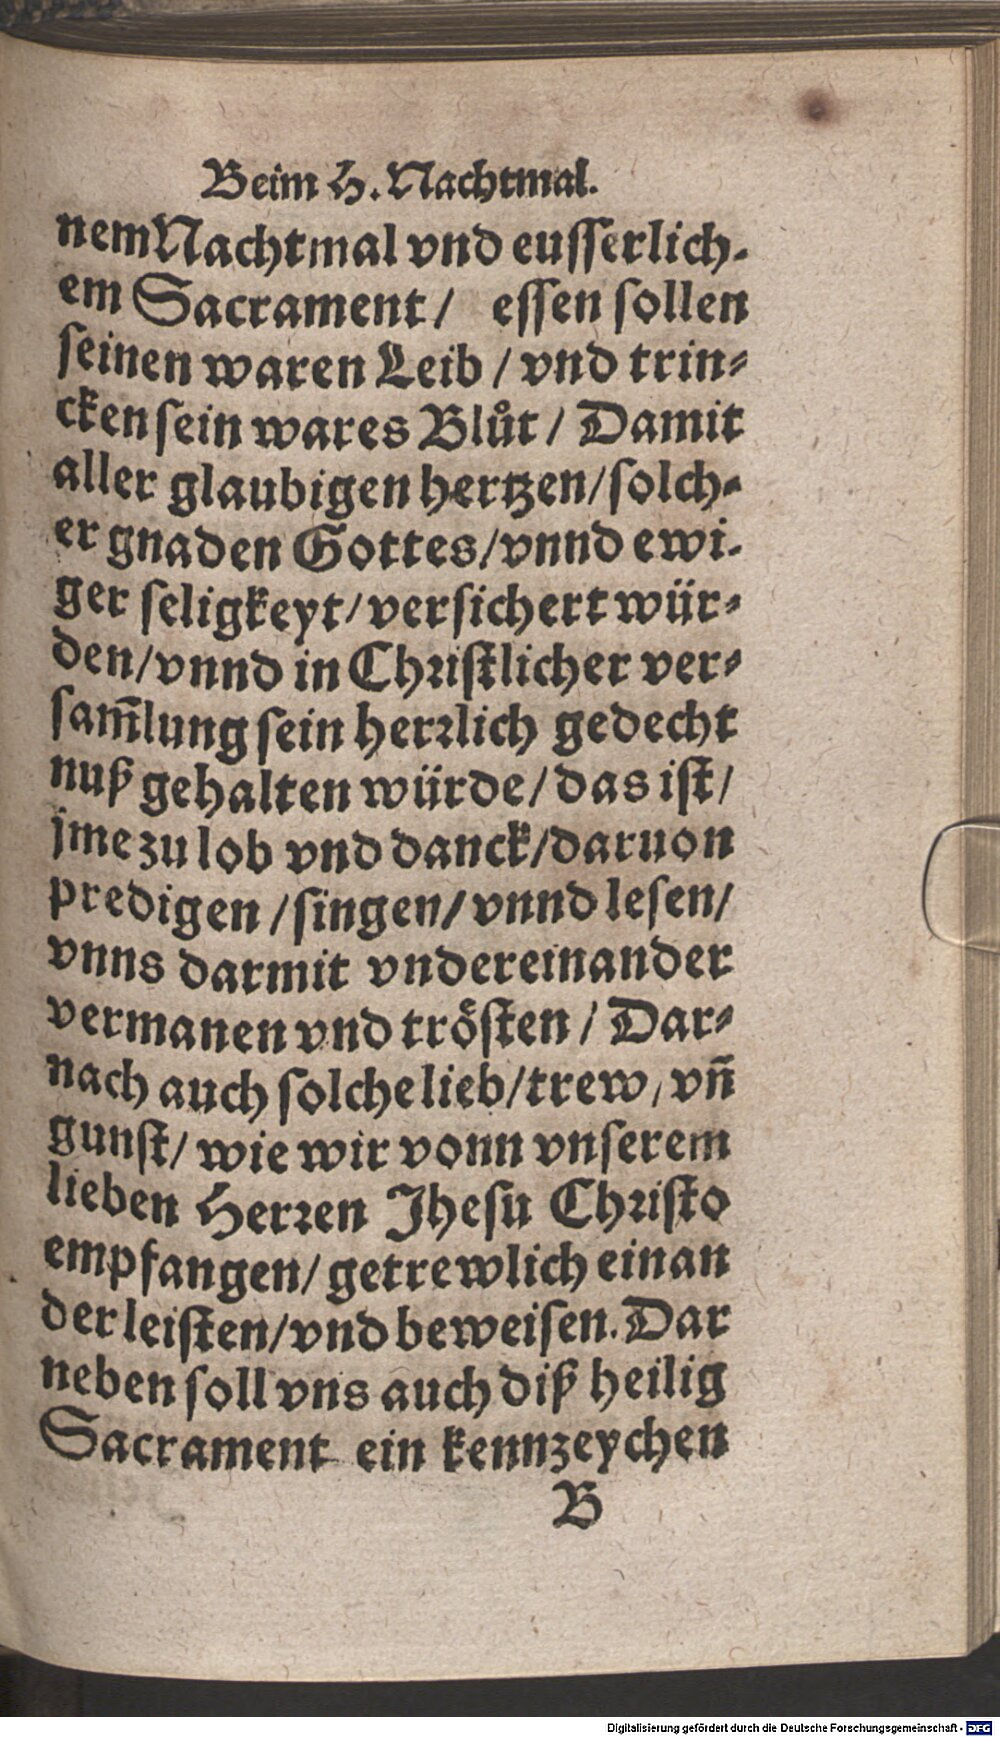 Beim H. Nachtmal.
nem Nachtmal vnd eusserlich-
em Sacrament / essen sollen
seinen waren Leib / vnd trin-
cken sein wares Blůt / Damit
aller glaubigen hertzen / solch-
er gnaden Gottes / vnnd ewi-
ger seligkeyt / versichert wür-
den / vnnd in Christlicher ver-
sam̃lung sein herrlich gedecht
nuß gehalten würde / das ist /
jme zu lob vnd danck / daruon
predigen / singen / vnnd lesen /
vnns darmit vndereinander
vermanen vnd trösten / Dar-
nach auch solche lieb / trew, vñ
gunst / wie wir vonn vnserem
lieben Herren Jhesu Christo
empfangen / getrewlich einan
der leisten / vnd beweisen. Dar
neben soll vns auch diß heilig
Sacrament ein kennzeychen
B
Digitalisierung gefördert durch die Deutsche Forschungsgemeinschaft - DFG